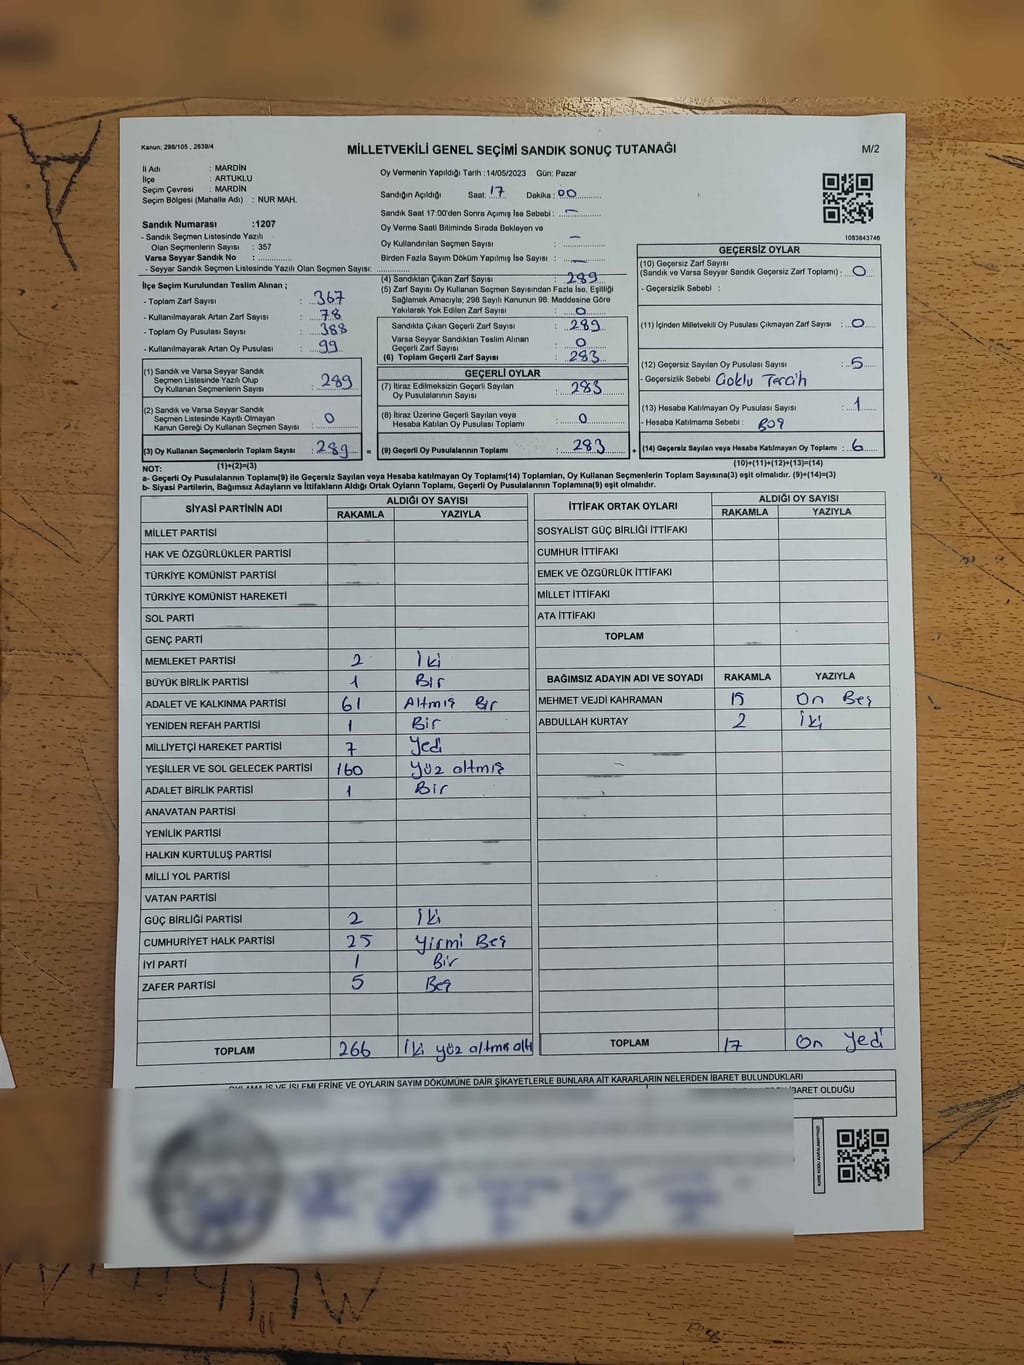 Kanun; 298/105 , 2839/4
MİLLETVEKİLİ GENEL SEÇİMİ SANDIK SONUÇ TUTANAĞI
M/2
İl Adı : MARDİN
İlçe : ARTUKLU
Seçim Çevresi : MARDİN
Seçim Bölgesi (Mahalle Adı) : NUR MAH.
Sandık Numarası :1207
- Sandık Seçmen Listesinde Yazılı
Olan Seçmenlerin Sayısı : 357
Varsa Seyyar Sandık No :
- Seyyar Sandık Seçmen Listesinde Yazılı Olan Seçmen Sayısı:
İlçe Seçim Kurulundan Teslim Alınan ;
- Toplam Zarf Sayısı : 367
- Kullanılmayarak Artan Zarf Sayısı : 78
- Toplam Oy Pusulası Sayısı : 388
- Kullanılmayarak Artan Oy Pusulası : 99
(1) Sandık ve Varsa Seyyar Sandık
Seçmen Listesinde Yazılı Olup
Oy Kullanan Seçmenlerin Sayısı : 289
(2) Sandık ve Varsa Seyyar Sandık
Seçmen Listesinde Kayıtlı Olmayan
Kanun Gereği Oy Kullanan Seçmen Sayısı : 0
(3) Oy Kullanan Seçmenlerin Toplam Sayısı : 289
(1)+(2)=(3)
Oy Vermenin Yapıldığı Tarih :14/05/2023 Gün: Pazar
Sandığın Açıldığı Saat: 17 Dakika : 00
Sandık Saat 17:00'den Sonra Açımış İse Sebebi : —
Oy Verme Saati Bitiminde Sırada Bekleyen ve
Oy Kullandırılan Seçmen Sayısı : —
Birden Fazla Sayım Döküm Yapılmış İse Sayısı : —
(4) Sandıktan Çıkan Zarf Sayısı : 289
(5) Zarf Sayısı Oy Kullanan Seçmen Sayısından Fazla İse, Eşitliği
Sağlamak Amacıyla; 298 Sayılı Kanunun 98. Maddesine Göre
Yakılarak Yok Edilen Zarf Sayısı : 0
Sandıkta Çıkan Geçerli Zarf Sayısı : 289
Varsa Seyyar Sandıktan Teslim Alınan
Geçerli Zarf Sayısı : 0
(6) Toplam Geçerli Zarf Sayısı : 283
GEÇERLİ OYLAR
(7) İtiraz Edilmeksizin Geçerli Sayılan
Oy Pusulalarının Sayısı : 283
(8) İtiraz Üzerine Geçerli Sayılan veya
Hesaba Katılan Oy Pusulası Toplamı : 0
= (9) Geçerli Oy Pusulalarının Toplamı : 283 +
1083843746
GEÇERSİZ OYLAR
(10) Geçersiz Zarf Sayısı
(Sandık ve Varsa Seyyar Sandık Geçersiz Zarf Toplamı) : 0
- Geçersizlik Sebebi :
(11) İçinden Milletvekili Oy Pusulası Çıkmayan Zarf Sayısı : 0
(12) Geçersiz Sayılan Oy Pusulası Sayısı : 5
- Geçersizlik Sebebi : Çoklu Tercih
(13) Hesaba Katılmayan Oy Pusulası Sayısı : 1
- Hesaba Katılmama Sebebi : Boş
(14) Geçersiz Sayılan veya Hesaba Katılmayan Oy Toplamı : 6
(10)+(11)+(12)+(13)=(14)
NOT:
a- Geçerli Oy Pusulalarının Toplamı(9) ile Geçersiz Sayılan veya Hesaba katılmayan Oy Toplamı(14) Toplamları, Oy Kullanan Seçmenlerin Toplam Sayısına(3) eşit olmalıdır. (9)+(14)=(3)
b- Siyasi Partilerin, Bağımsız Adayların ve İttifakların Aldığı Ortak Oyların Toplamı, Geçerli Oy Pusulalarının Toplamına(9) eşit olmalıdır.
SİYASİ PARTİNİN ADI ALDIĞI OY SAYISI
RAKAMLA YAZIYLA
MİLLET PARTİSİ
HAK VE ÖZGÜRLÜKLER PARTİSİ
TÜRKİYE KOMÜNİST PARTİSİ
TÜRKİYE KOMÜNİST HAREKETİ
SOL PARTİ
GENÇ PARTİ
MEMLEKET PARTİSİ 2 İki
BÜYÜK BİRLİK PARTİSİ 1 Bir
ADALET VE KALKINMA PARTİSİ 61 Altmış Bir
YENİDEN REFAH PARTİSİ 1 Bir
MİLLİYETÇİ HAREKET PARTİSİ 7 Yedi
YEŞİLLER VE SOL GELECEK PARTİSİ 160 Yüz altmış
ADALET BİRLİK PARTİSİ 1 Bir
ANAVATAN PARTİSİ
YENİLİK PARTİSİ
HALKIN KURTULUŞ PARTİSİ
MİLLİ YOL PARTİSİ
VATAN PARTİSİ
GÜÇ BİRLİĞİ PARTİSİ 2 İki
CUMHURİYET HALK PARTİSİ 25 Yirmi Beş
İYİ PARTİ 1 Bir
ZAFER PARTİSİ 5 Beş
TOPLAM 266 İki yüz altmış altı
İTTİFAK ORTAK OYLARI ALDIĞI OY SAYISI
RAKAMLA YAZIYLA
SOSYALİST GÜÇ BİRLİĞİ İTTİFAKI
CUMHUR İTTİFAKI
EMEK VE ÖZGÜRLÜK İTTİFAKI
MİLLET İTTİFAKI
ATA İTTİFAKI
TOPLAM
BAĞIMSIZ ADAYIN ADI VE SOYADI RAKAMLA YAZIYLA
MEHMET VEJDİ KAHRAMAN 15 On Beş
ABDULLAH KURTAY 2 İki
TOPLAM 17 On Yedi
OYLAMA İŞ VE İŞLEMLERİNE VE OYLARIN SAYIM DÖKÜMÜNE DAİR ŞİKAYETLERLE BUNLARA AİT KARARLARIN NELERDEN İBARET BULUNDUKLARI
İBARET OLDUĞU